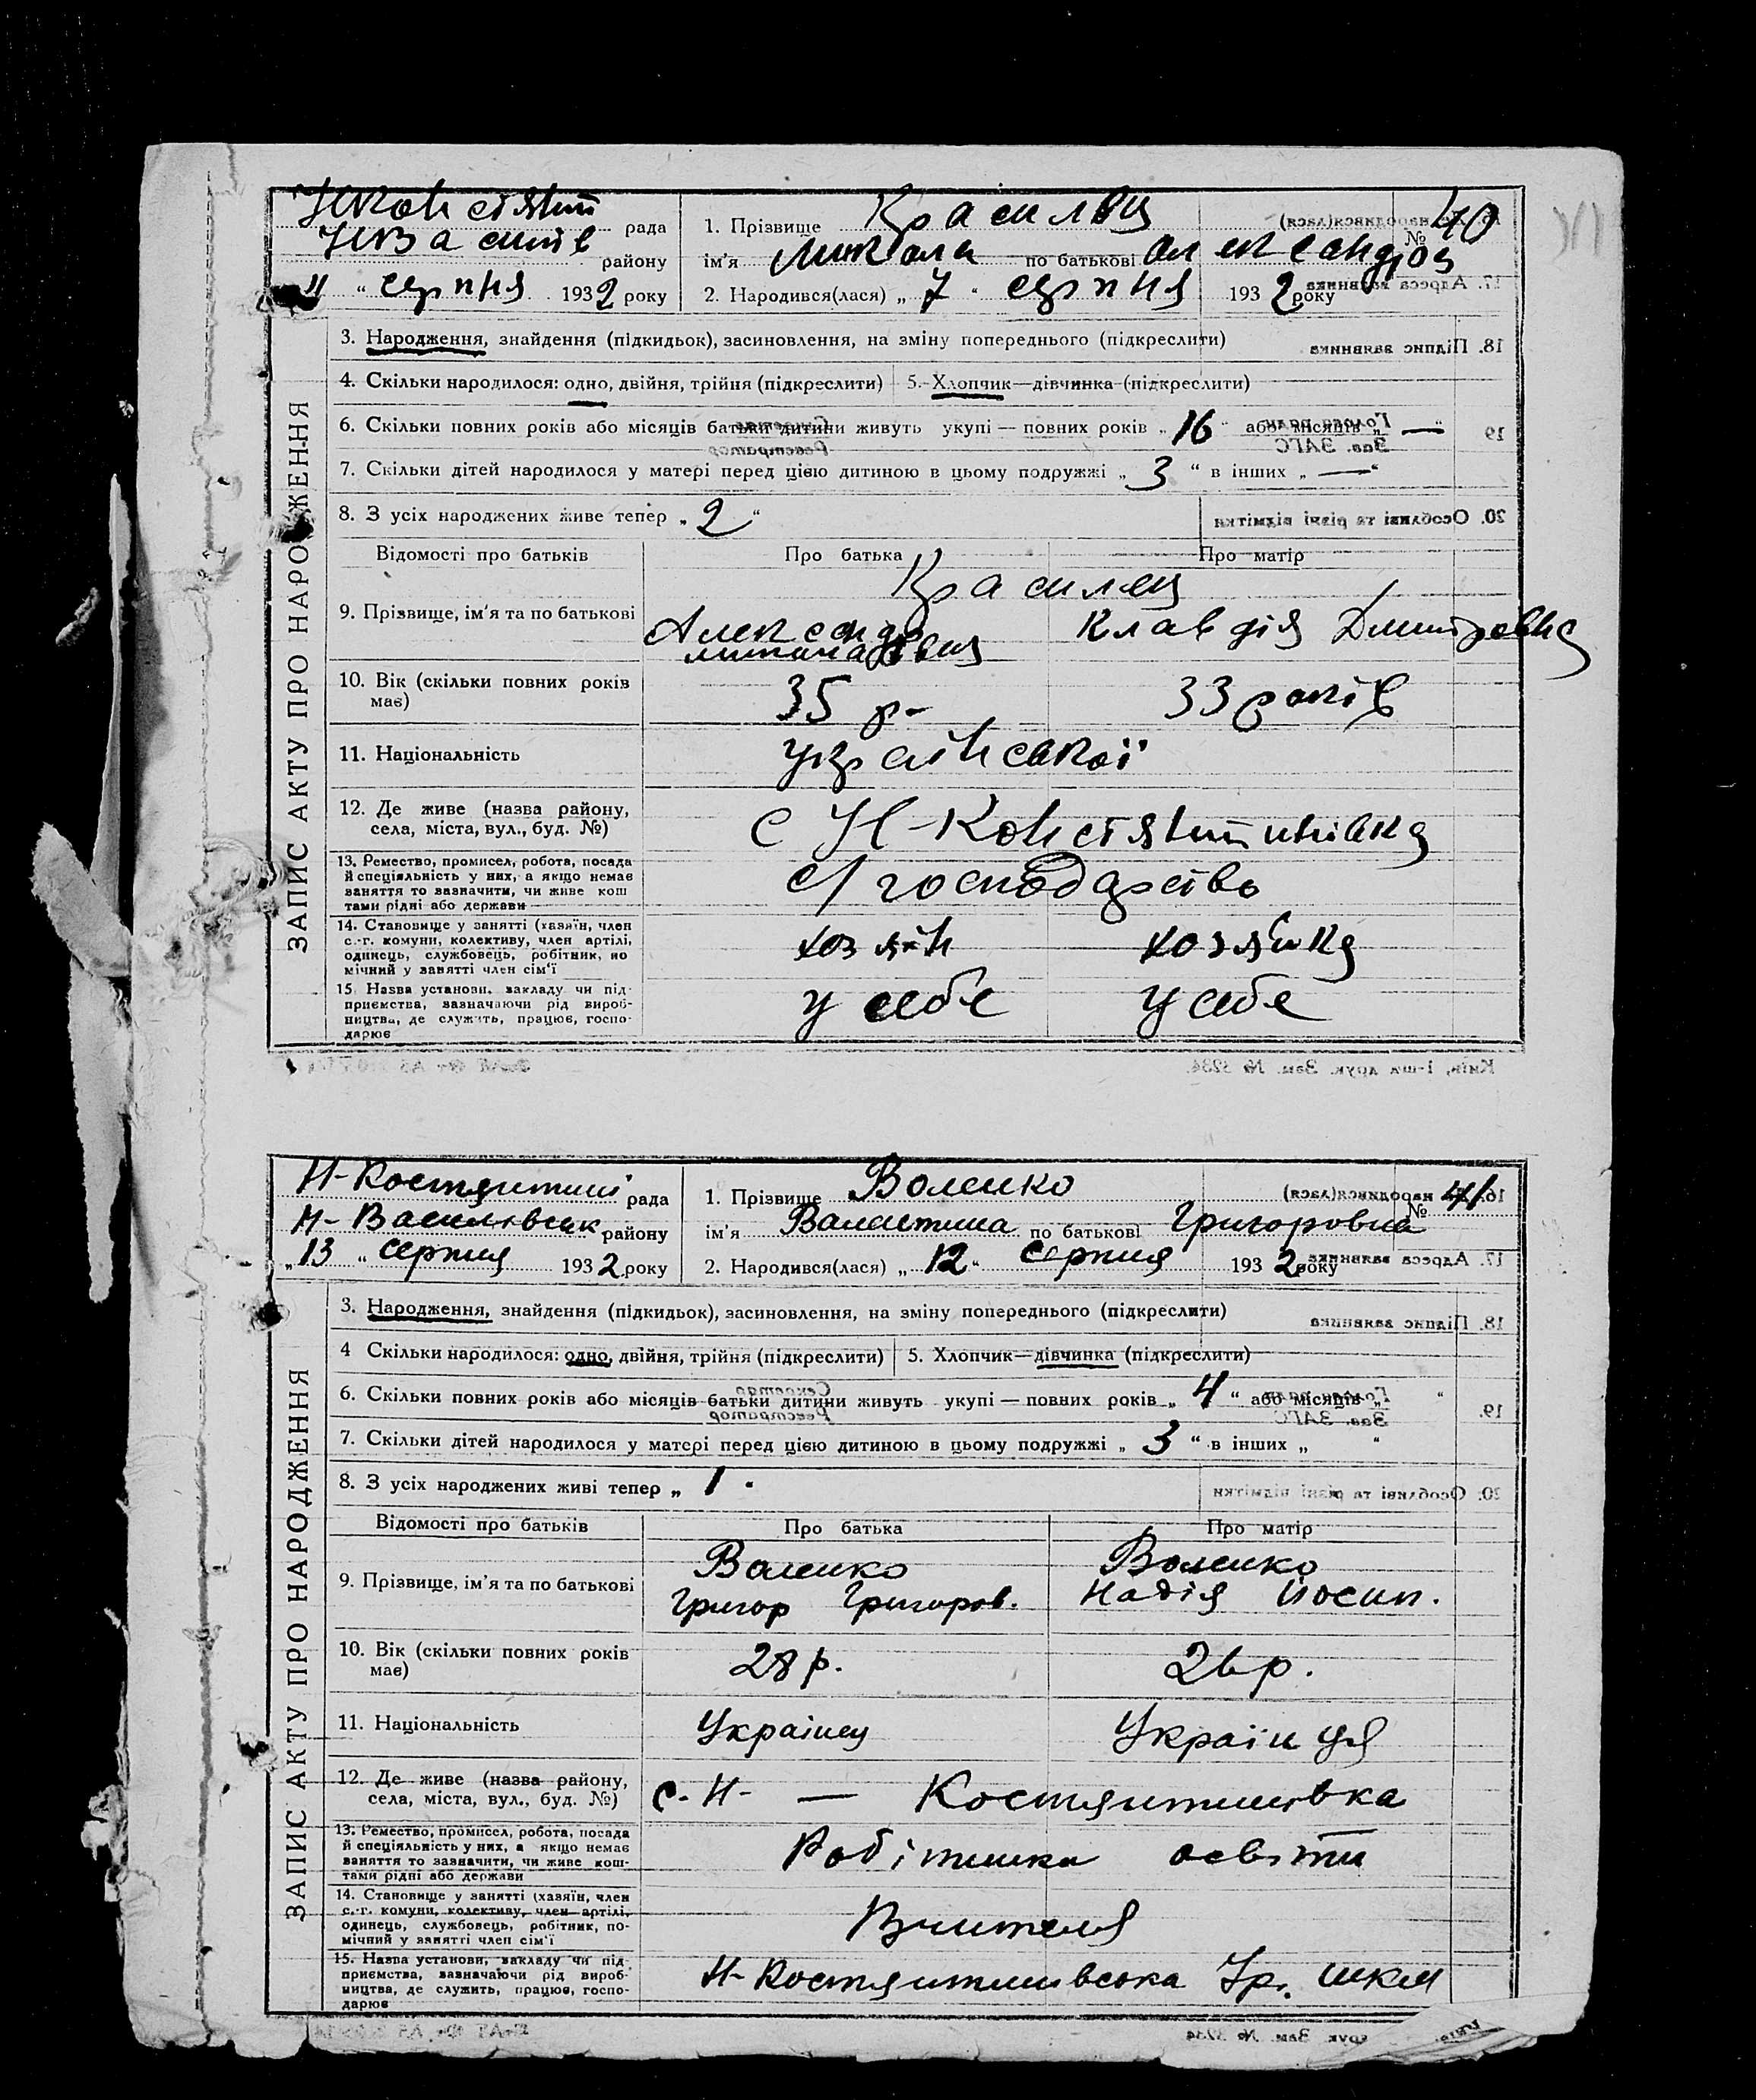 Нконстянт рада
НВасилів району
" серпня 1932 року
1. Прізвище Красилец № 40
ім'я Микола по батькові Александров
2. Народився(лася) „ 7 " серпня 1932 року
ЗАПИС АКТУ ПРО НАРОДЖЕННЯ
3. Народження, знайдення (підкидьок), засиновлення, на зміну попереднього (підкреслити)
4. Скільки народилося: одно, двійня, трійня (підкреслити) 5. Хлопчик—дівчинка (підкреслити)
6. Скільки повних років або місяців батьки дитини живуть укупі — повних років „ 16 " або місяців „ — "
7. Скільки дітей народилося у матері перед цією дитиною в цьому подружжі „ 3 " в інших „ — "
8. З усіх народжених живе тепер „ 2 "
Відомості про батьків Про батька Про матір
Красилец
9. Прізвище, ім'я та по батькові Александр Клавдія Дмитровна
10. Вік (скільки повних років має) 35 р- 33 років
11. Національність української
12. Де живе (назва району, села, міста, вул., буд. №) с Н-Констянтинівка
13. Ремество, промисел, робота, посада й спеціяльність у них, а якщо немає заняття то зазначити, чи живе коштами рідні або держави с/господарство
14. Становище у занятті (хазяїн, член с.-г. комуни, колективу, член артілі, одинець, службовець, робітник, помічний у занятті член сім'ї хозяін хозяйка
15. Назва установи, закладу чи підприємства, зазначаючи рід виробництва, де служить, працює, господарює у себе у себе
Київ, 1-ша друк. Зам. № 3234.
Н-Костянтин рада
Н-Василівськ району
„ 13 " серпня 1932 року
1. Прізвище Воленко № 41
ім'я Валентина по батькові Григоровна
2. Народився(лася) „ 12 " Серпня 1932 року
ЗАПИС АКТУ ПРО НАРОДЖЕННЯ
3. Народження, знайдення (підкидьок), засиновлення, на зміну попереднього (підкреслити)
4 Скільки народилося: одно, двійня, трійня (підкреслити) 5. Хлопчик—дівчинка (підкреслити)
6. Скільки повних років або місяців батьки дитини живуть укупі — повних років „ 4 " або місяців „ "
7. Скільки дітей народилося у матері перед цією дитиною в цьому подружжі „ 3 " в інших „ "
8. З усіх народжених живі тепер „ 1 .
Відомості про батьків Про батька Про матір
Воленко Воленко
9. Прізвище, ім'я та по батькові Григор Григоров. Надія Йосип.
10. Вік (скільки повних років має) 28 р. 26 р.
11. Національність Українец Українця
12. Де живе (назва району, села, міста, вул., буд. №) с. Н- — Костянтинівка
13. Ремество, промисел, робота, посада й спеціяльність у них, а якщо немає заняття то зазначити, чи живе коштами рідні або держави Робітника освіти
14. Становище у занятті (хазяїн, член с.-г. комуни, колективу, член артілі, одинець, службовець, робітник, помічний у занятті член сім'ї Вчителя
15. Назва установи, закладу чи підприємства, зазначаючи рід виробництва, де служить, працює, господарює Н-Костянтинівська Тр. школ